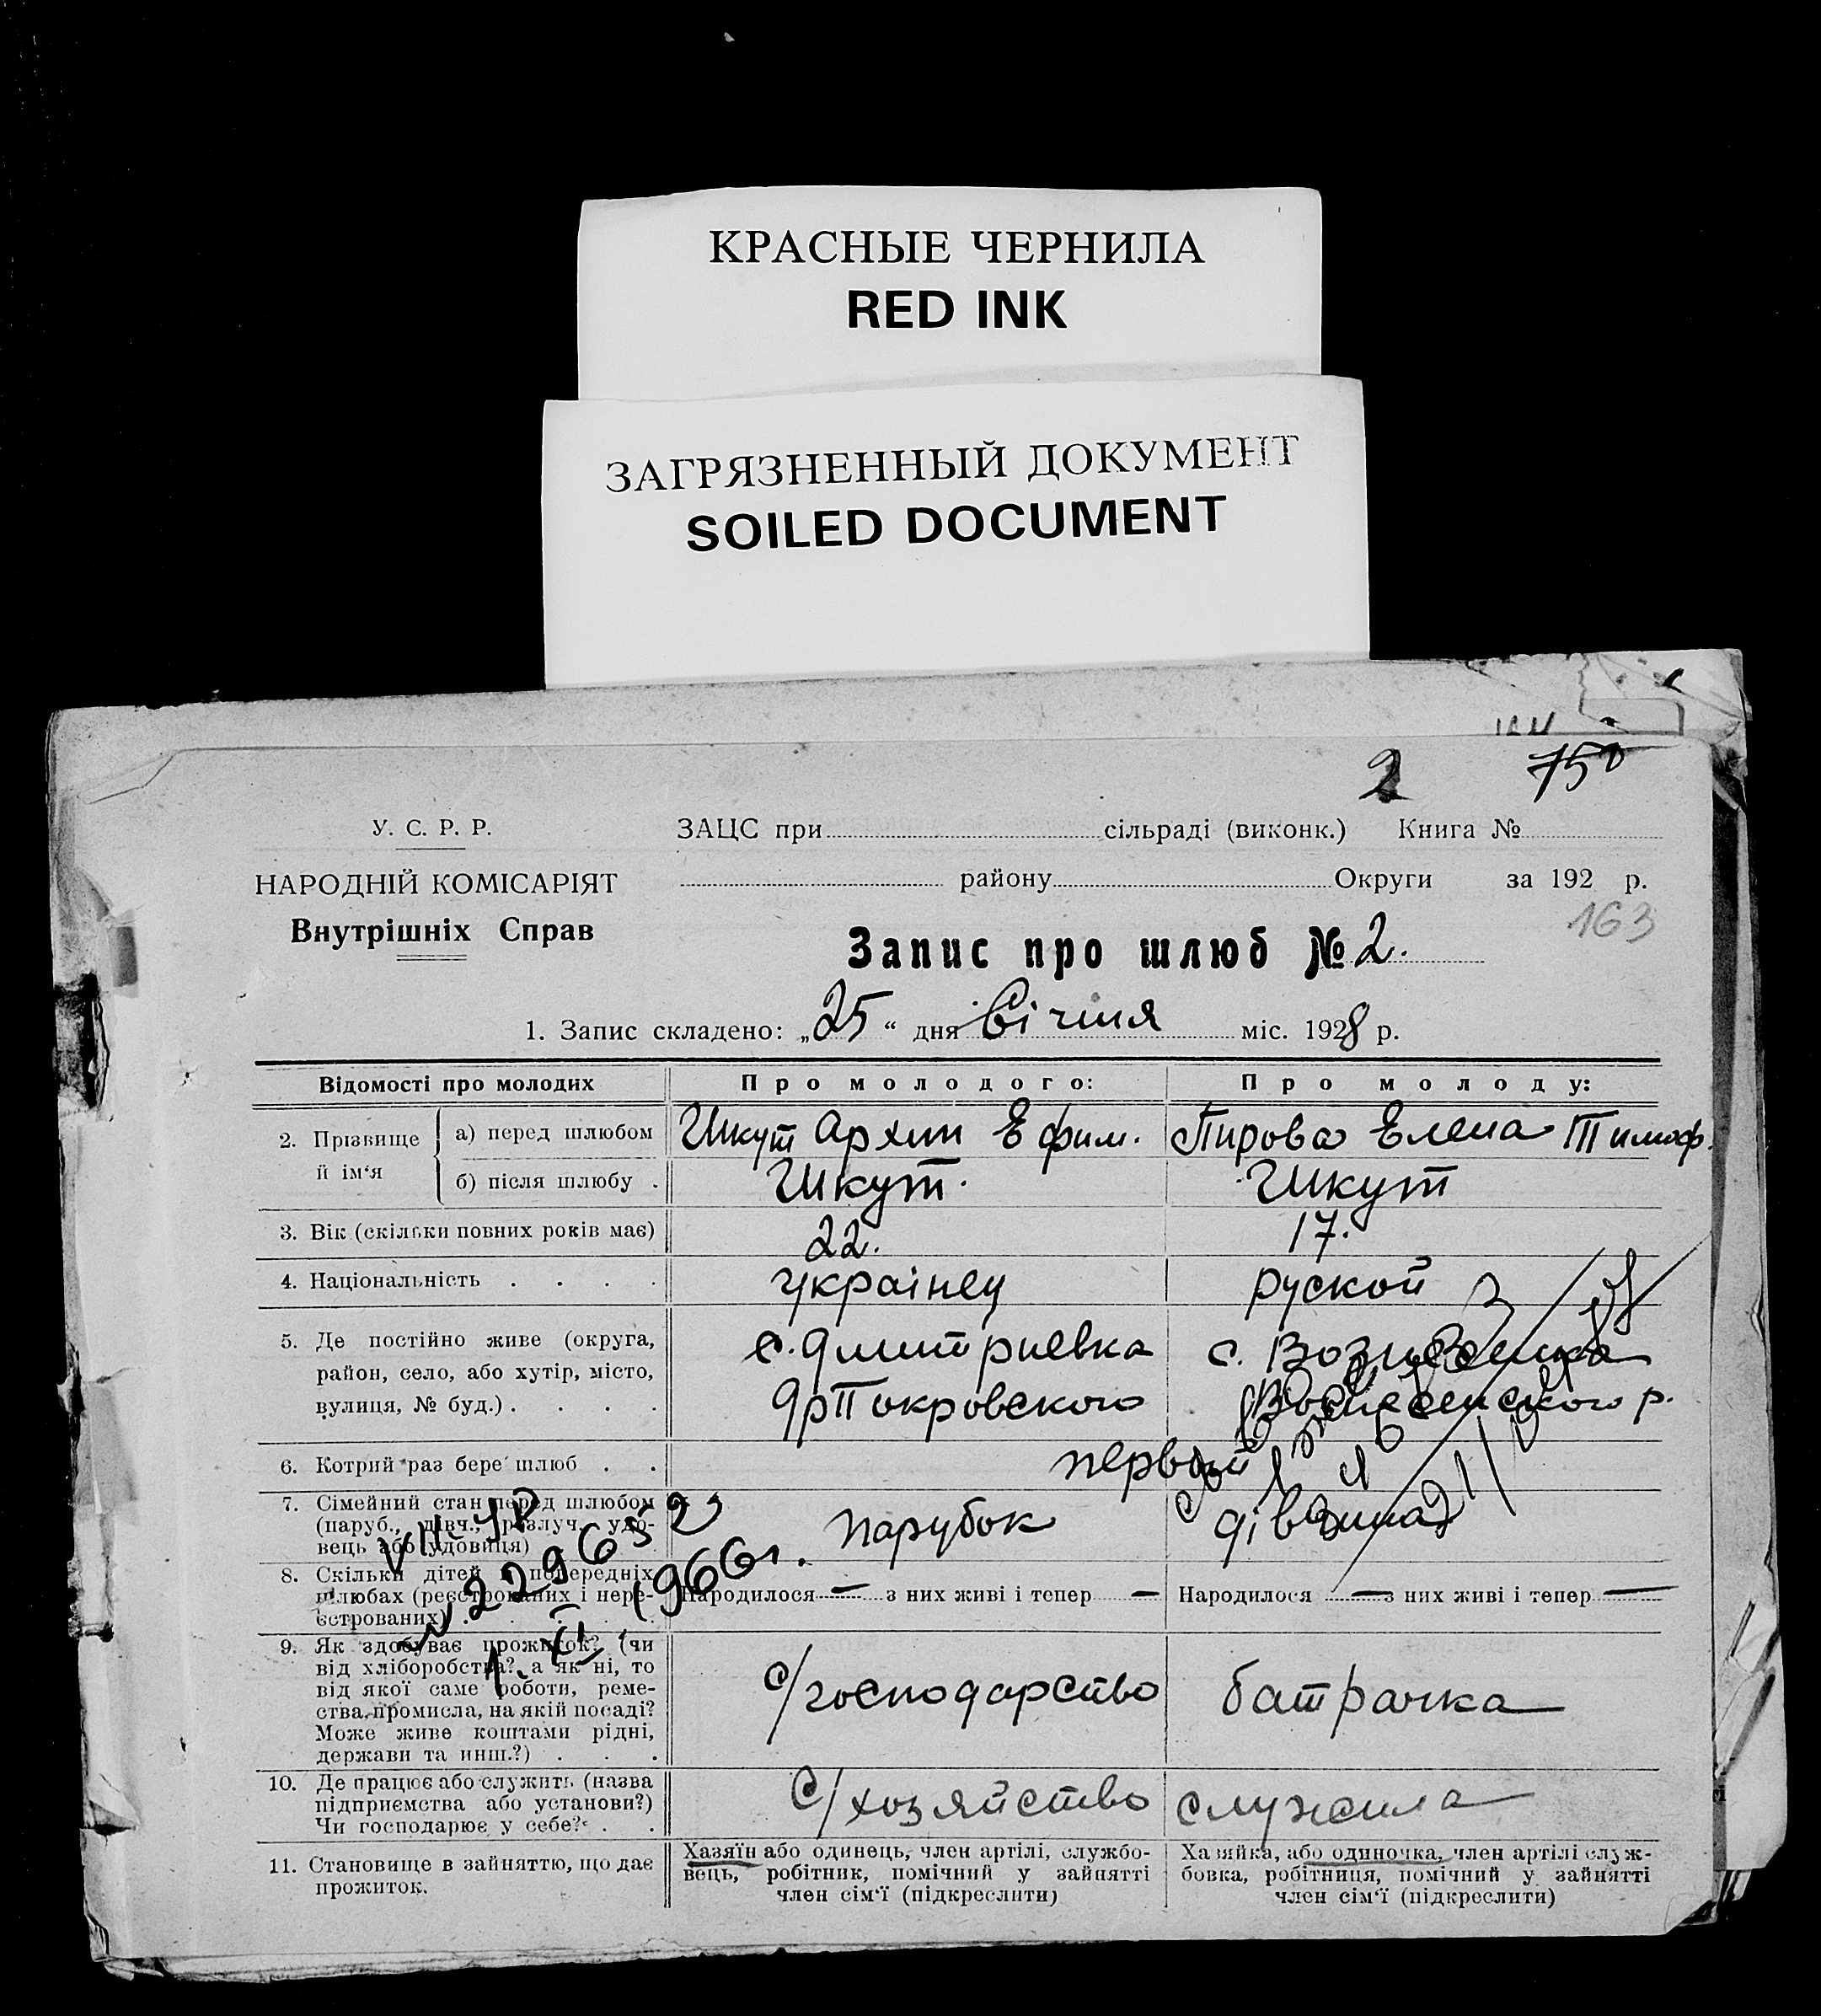 КРАСНЫЕ ЧЕРНИЛА
RED INK
ЗАГРЯЗНЕННЫЙ ДОКУМЕНТ
SOILED DOCUMENT
2 750
У. С. Р. Р.
НАРОДНІЙ КОМІСАРІЯТ
Внутрішніх Справ
ЗАЦС при сільраді (виконк.) Книга №
району Округи за 192 р.
163
Запис про шлюб № 2.
1. Запис складено: „25“ дня Січня міс. 1928 р.
Відомості про молодих
Про молодого:
Про молоду:
2. Прізвище й ім‘я
а) перед шлюбом
Шкут Архип Ефим.
Пирова Елена Тимоф.
б) після шлюбу .
Шкут.
Шкут
3. Вік (скільки повних років має)
22.
17.
4. Національність . . . .
українец
руской
5. Де постійно живе (округа,
район, село, або хутір, місто,
вулиця, № буд.) . . . .
с. Дмитриевка
др Покровского
с. Вознесенка
Вознесенского р.
6. Котрий раз бере шлюб . .
первый
7. Сімейний стан перед шлюбом
(паруб., дівч., розлуч., удо-
вець або удовиця)
парубок
дівчина
8. Скільки дітей в попередніх
шлюбах (реєстрованих і нере-
єстрованих) . . . . .
Народилося — з них живі і тепер —
Народилося — з них живі і тепер —
229652
1966г.
9. Як здобуває прожиток? (чи
від хліборобства? а як ні, то
від якої саме роботи, реме-
ства, промисла, на якій посаді?
Може живе коштами рідні,
держави та инш.?) . . .
с/господарство
батрачка
10. Де працює або служить (назва
підприємства або установи?)
Чи господарює у себе? . .
С/хозяйство
служила
11. Становище в зайняттю, що дає
прожиток.
Хазяїн або одинець, член артілі, службо-
вець, робітник, помічний у зайнятті
член сім‘ї (підкреслити)
Хазяйка, або одиночка, член артілі служ-
бовка, робітниця, помічний у зайнятті
член сім‘ї (підкреслити)